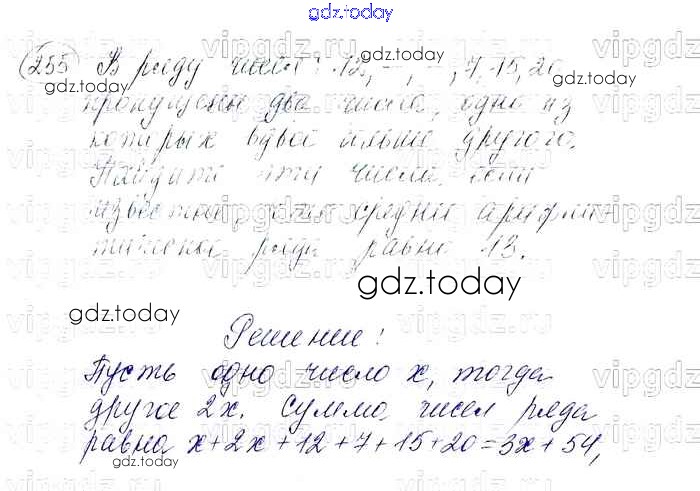 gdz.today
255 В ряду чисел: 12, —, —, 7, 15, 20
пропущены два числа, одно из
которых вдвое больше другого.
Найдите эти числа, если
известно, что средние арифме-
тическое ряда равно 13.
gdz.today
gdz.today
Решение:
Пусть одно число x, тогда
другое 2x. Сумма чисел ряда
равна x+2x+12+7+15+20=3x+54,
gdz.today